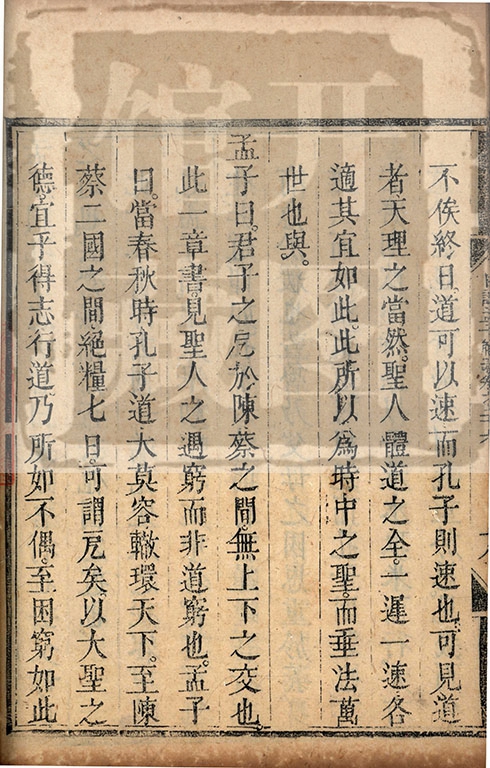 不俟終日道可以速而孔子則速也可見道
者天理之當然聖人體道之全一遲一速各
適其宜如此此所以爲時中之聖而垂法萬
世也與
孟子曰君子之戹於陳蔡之間無上下之交也
此一章書見聖人之遇窮而非道窮也孟子
曰當春秋時孔子道大莫容轍環天下至陳
蔡二國之間絕糧七日可謂戹矣以大聖之
德宜乎得志行道乃所如不偶至困窮如此